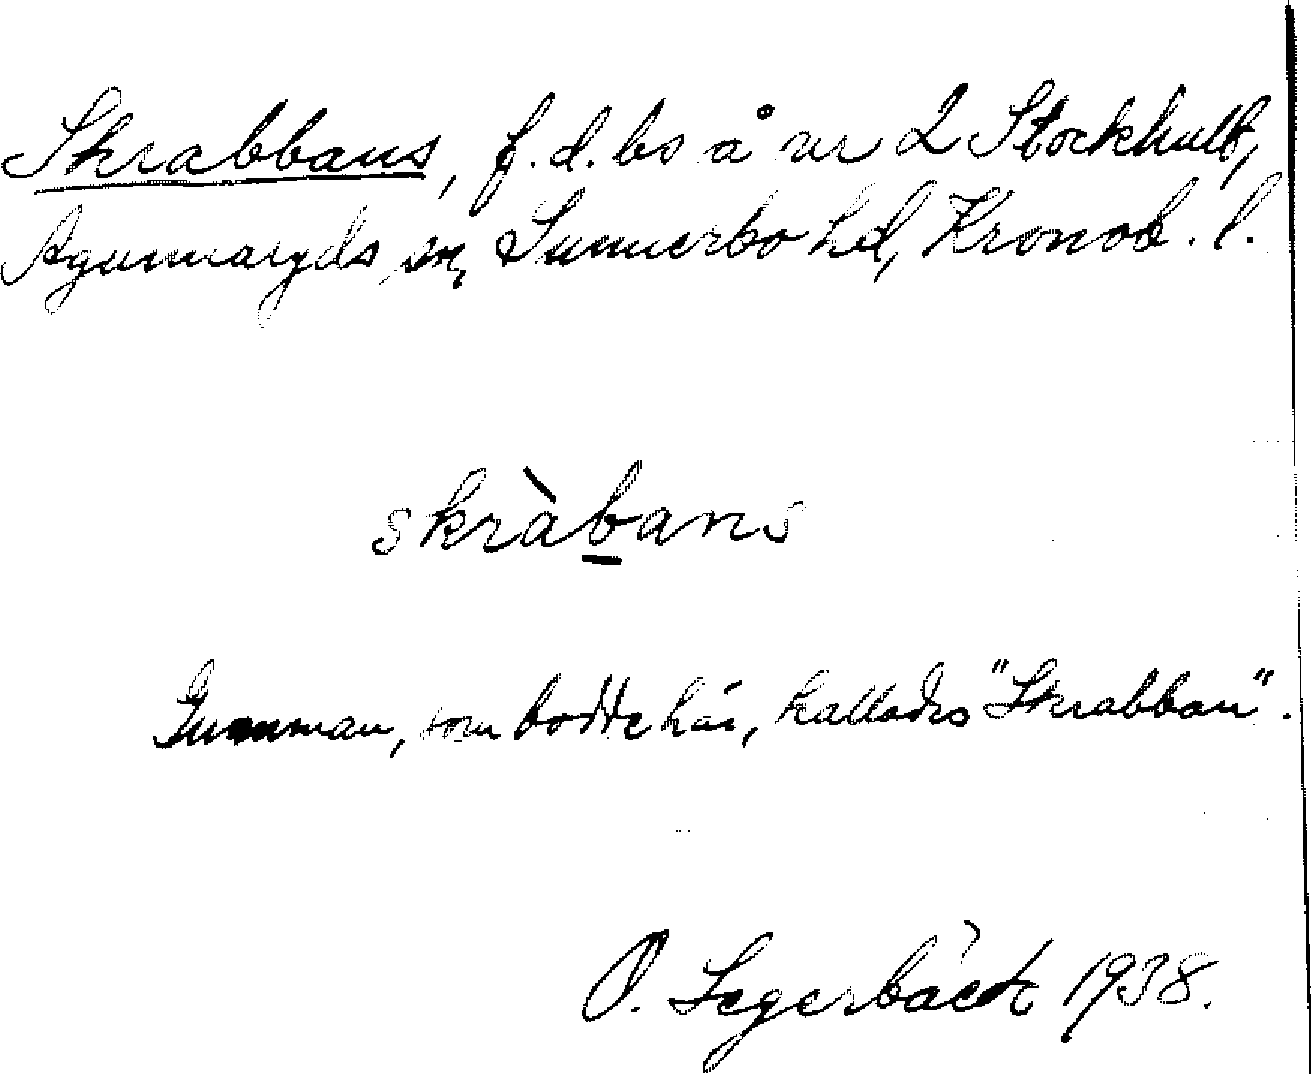 Skrabbans, f.d. bs å nr 2 Stockhult,
Agunnaryds sn, Sunnerbo hd, Kronob. l.
skràbans
Gumman, som bodde här, kallades "Skrabban".
O. Segerbäck 1938.